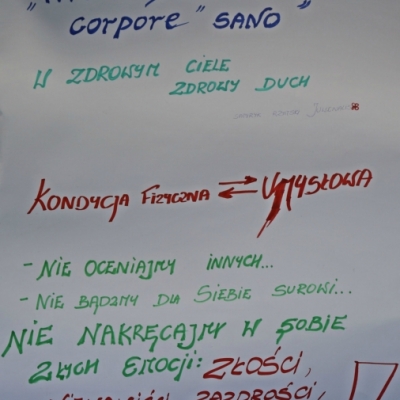 corpore" SANO"
W ZDROWYM CIELE
ZDROWY DUCH
KONDYCJA FIZYCZNA ⇄ UMYSŁOWA
- NIE OCENIAJMY INNYCH...
- NIE BĄDŹMY DLA SIEBIE SUROWI...
NIE NAKRĘCAJMY W SOBIE
ZŁYCH EMOCJI: ZŁOŚCI,
ZAZDROŚCI,